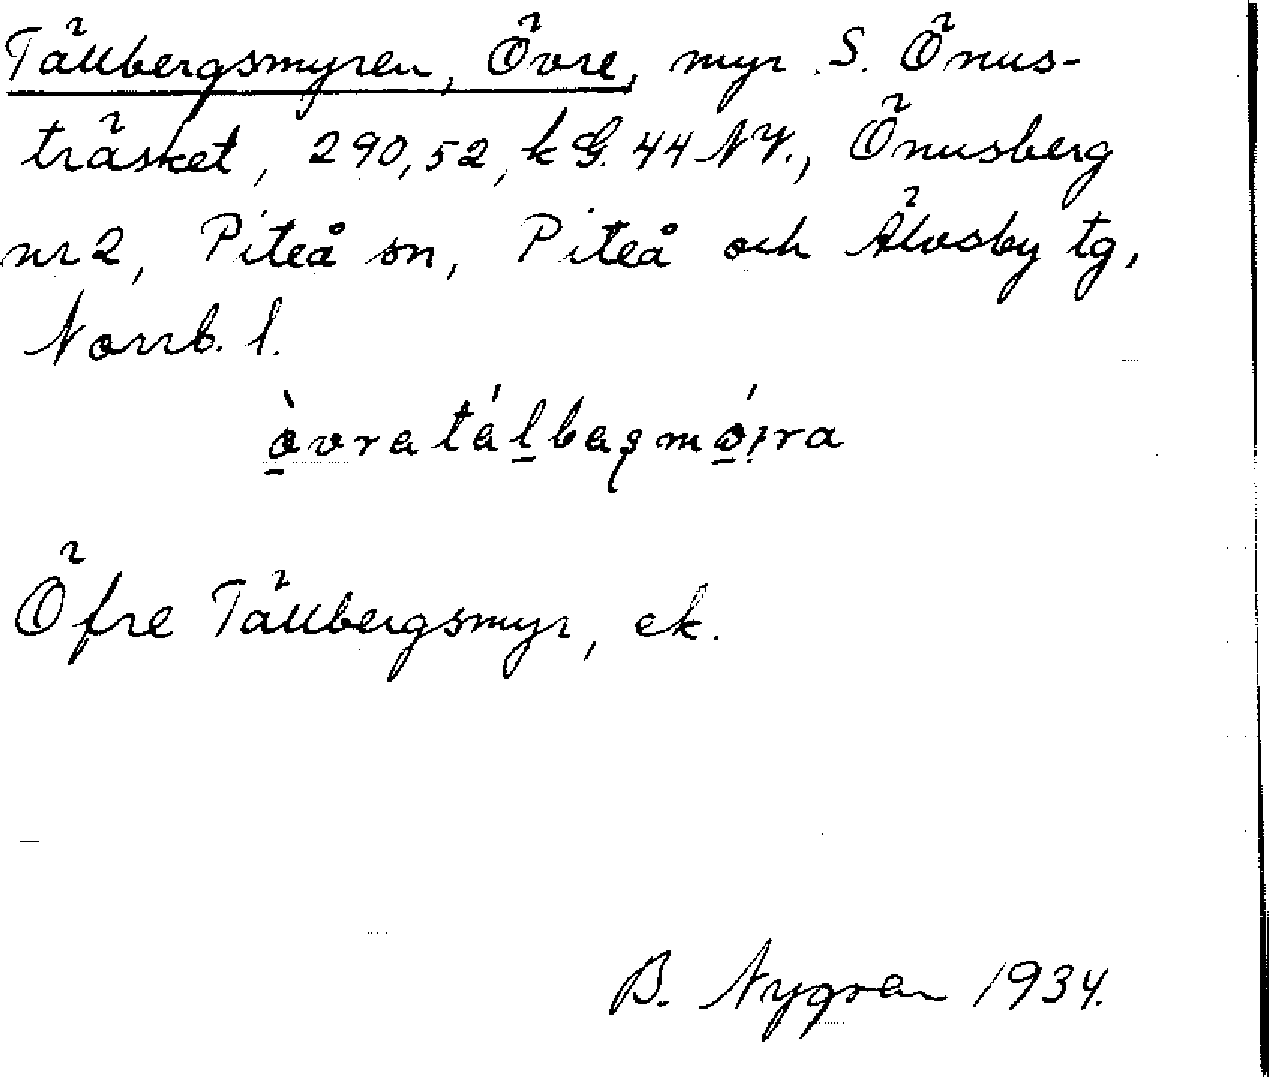 Tällbergsmyren, Övre, myr S. Önus-
träsket, 290,52, k G. 44 NV., Önusberg
nr 2, Piteå sn, Piteå och Älvsby tg,
Norrb. l.
Öfre Tällbergsmyr, ek.
B. Nygren 1934.